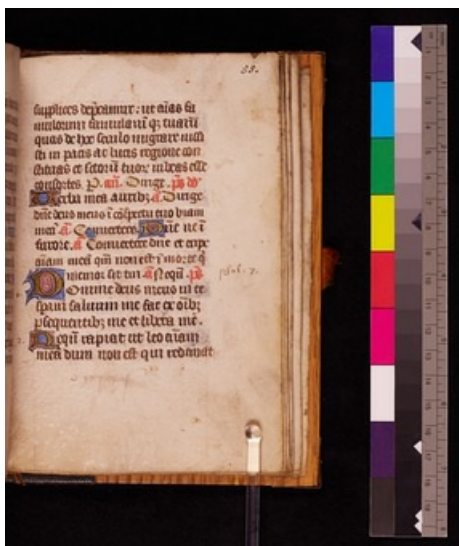 58.
supplices dep̄camur: ut aīas fa
mulorum famularū qȝ tuarū
quas de hoc seculo migrare iussi
sti in pacis ac lucis regione con
stituas et sc̄torū tuor̄ iubeas esse
consortes. P. añ. Dirige. p̄s dd̄
Verba mea auribȝ. A. Dirige
dn̄e deus meus ī cōspectu tuo viam
meā. A. Convertere. Dn̄e ne ī
furore. A. Convertere dn̄e et eripe
aīam meā qm̄ non est ī morte q̄
memor sit tui. A. Nequā. p̄s
Domine deus meus in te
speravi salvum me fac ex oībȝ
p̄sequentibȝ me et libera me.
Nequā rapiat ut leo aīam
meā dum non est qui redimat
psal. 7.